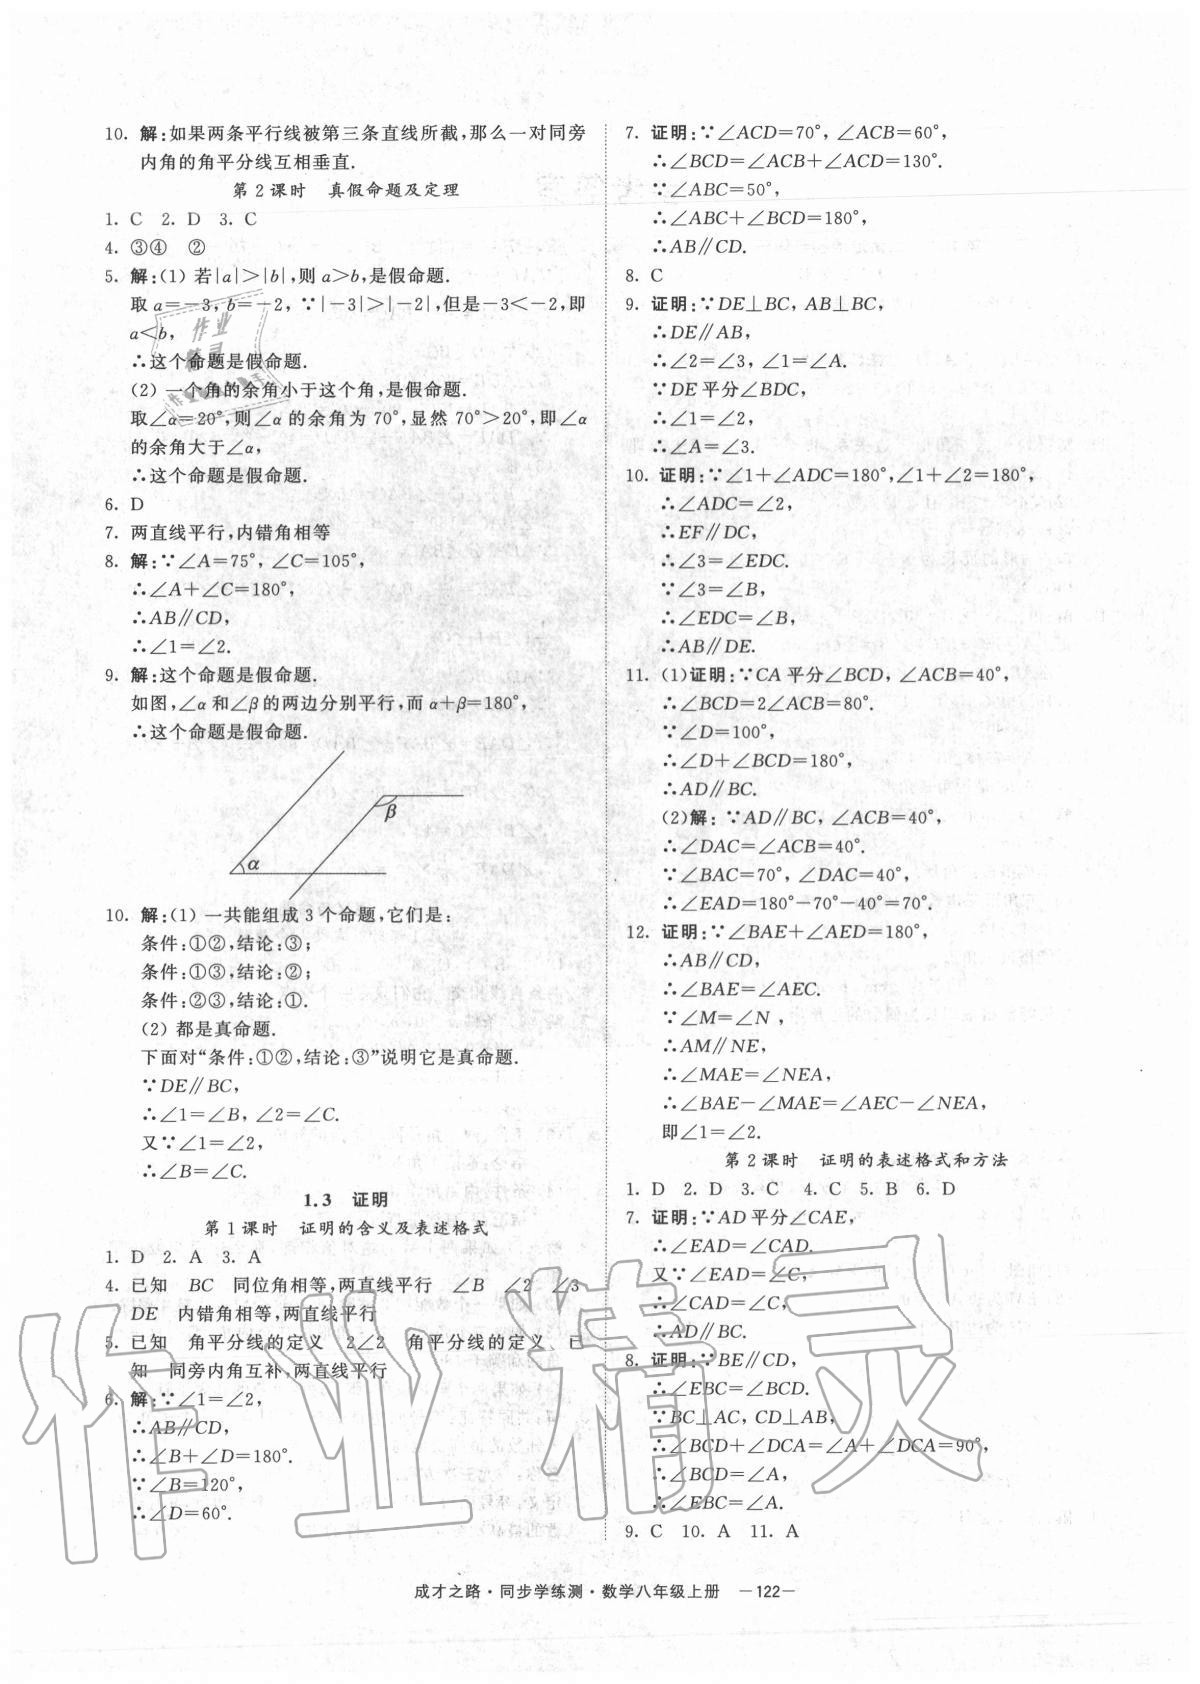 10. 解:如果两条平行线被第三条直线所截,那么一对同旁
内角的角平分线互相垂直.
第2课时 真假命题及定理
1. C 2. D 3. C
4. ③④ ②
5. 解:(1) 若|a|>|b|,则a>b,是假命题.
取a=-3,b=-2,∵|-3|>|-2|,但是-3<-2,即
a<b,
∴这个命题是假命题.
(2) 一个角的余角小于这个角,是假命题.
取∠α=20°,则∠α的余角为70°,显然70°>20°,即∠α
的余角大于∠α,
∴这个命题是假命题.
6. D
7. 两直线平行,内错角相等
8. 解:∵∠A=75°,∠C=105°,
∴∠A+∠C=180°,
∴AB∥CD,
∴∠1=∠2.
9. 解:这个命题是假命题.
如图,∠α和∠β的两边分别平行,而α+β=180°,
∴这个命题是假命题.
β
α
10. 解:(1) 一共能组成3个命题,它们是:
条件:①②,结论:③;
条件:①③,结论:②;
条件:②③,结论:①.
(2) 都是真命题.
下面对“条件:①②,结论:③”说明它是真命题.
∵DE∥BC,
∴∠1=∠B,∠2=∠C.
又∵∠1=∠2,
∴∠B=∠C.
1.3 证明
第1课时 证明的含义及表述格式
1. D 2. A 3. A
4. 已知 BC 同位角相等,两直线平行 ∠B ∠2 ∠3
DE 内错角相等,两直线平行
5. 已知 角平分线的定义 2∠2 角平分线的定义 已
知 同旁内角互补,两直线平行
6. 解:∵∠1=∠2,
∴AB∥CD,
∴∠B+∠D=180°.
∵∠B=120°,
∴∠D=60°.
7. 证明:∵∠ACD=70°,∠ACB=60°,
∴∠BCD=∠ACB+∠ACD=130°.
∵∠ABC=50°,
∴∠ABC+∠BCD=180°,
∴AB∥CD.
8. C
9. 证明:∵DE⊥BC,AB⊥BC,
∴DE∥AB,
∴∠2=∠3,∠1=∠A.
∵DE平分∠BDC,
∴∠1=∠2,
∴∠A=∠3.
10. 证明:∵∠1+∠ADC=180°,∠1+∠2=180°,
∴∠ADC=∠2,
∴EF∥DC,
∴∠3=∠EDC.
∵∠3=∠B,
∴∠EDC=∠B,
∴AB∥DE.
11. (1)证明:∵CA平分∠BCD,∠ACB=40°,
∴∠BCD=2∠ACB=80°.
∵∠D=100°,
∴∠D+∠BCD=180°,
∴AD∥BC.
(2)解:∵AD∥BC,∠ACB=40°,
∴∠DAC=∠ACB=40°.
∵∠BAC=70°,∠DAC=40°,
∴∠EAD=180°-70°-40°=70°.
12. 证明:∵∠BAE+∠AED=180°,
∴AB∥CD,
∴∠BAE=∠AEC.
∵∠M=∠N,
∴AM∥NE,
∴∠MAE=∠NEA,
∴∠BAE-∠MAE=∠AEC-∠NEA,
即∠1=∠2.
第2课时 证明的表述格式和方法
1. D 2. D 3. C 4. C 5. B 6. D
7. 证明:∵AD平分∠CAE,
∴∠EAD=∠CAD.
又∵∠EAD=∠C,
∴∠CAD=∠C,
∴AD∥BC.
8. 证明:∵BE∥CD,
∴∠EBC=∠BCD.
∵BC⊥AC,CD⊥AB,
∴∠BCD+∠DCA=∠A+∠DCA=90°,
∴∠BCD=∠A,
∴∠EBC=∠A.
9. C 10. A 11. A
作业精灵
成才之路·同步学练测·数学八年级上册 —122—